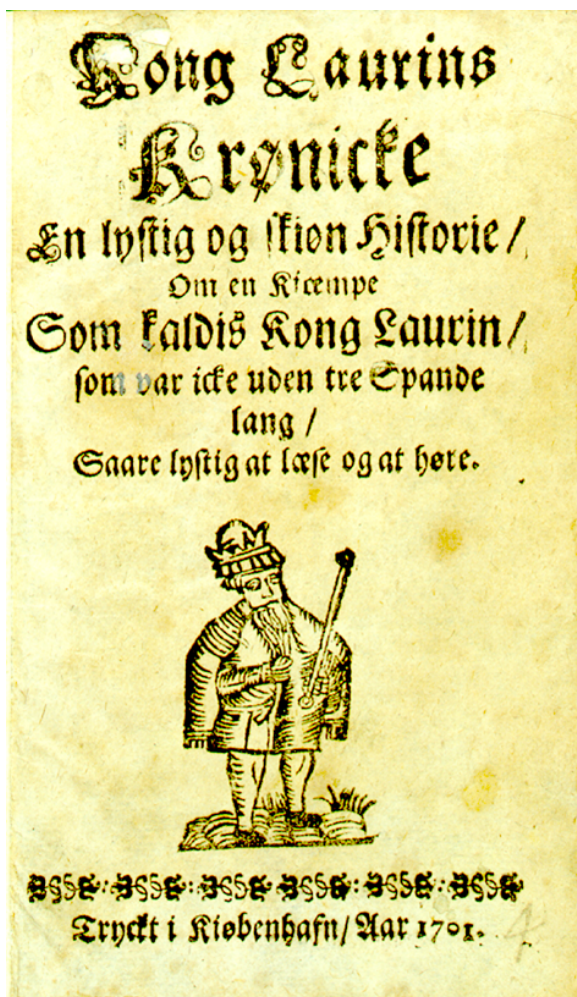 Kong Laurins
Krønicke
En lystig og skiøn Historie/
Om en Kiæmpe
Som kaldis Kong Laurin/
som var icke uden tre Spande
lang/
Saare lystig at læse og at høre.
Tryckt i Kiøbenhafn/ Aar 1701.